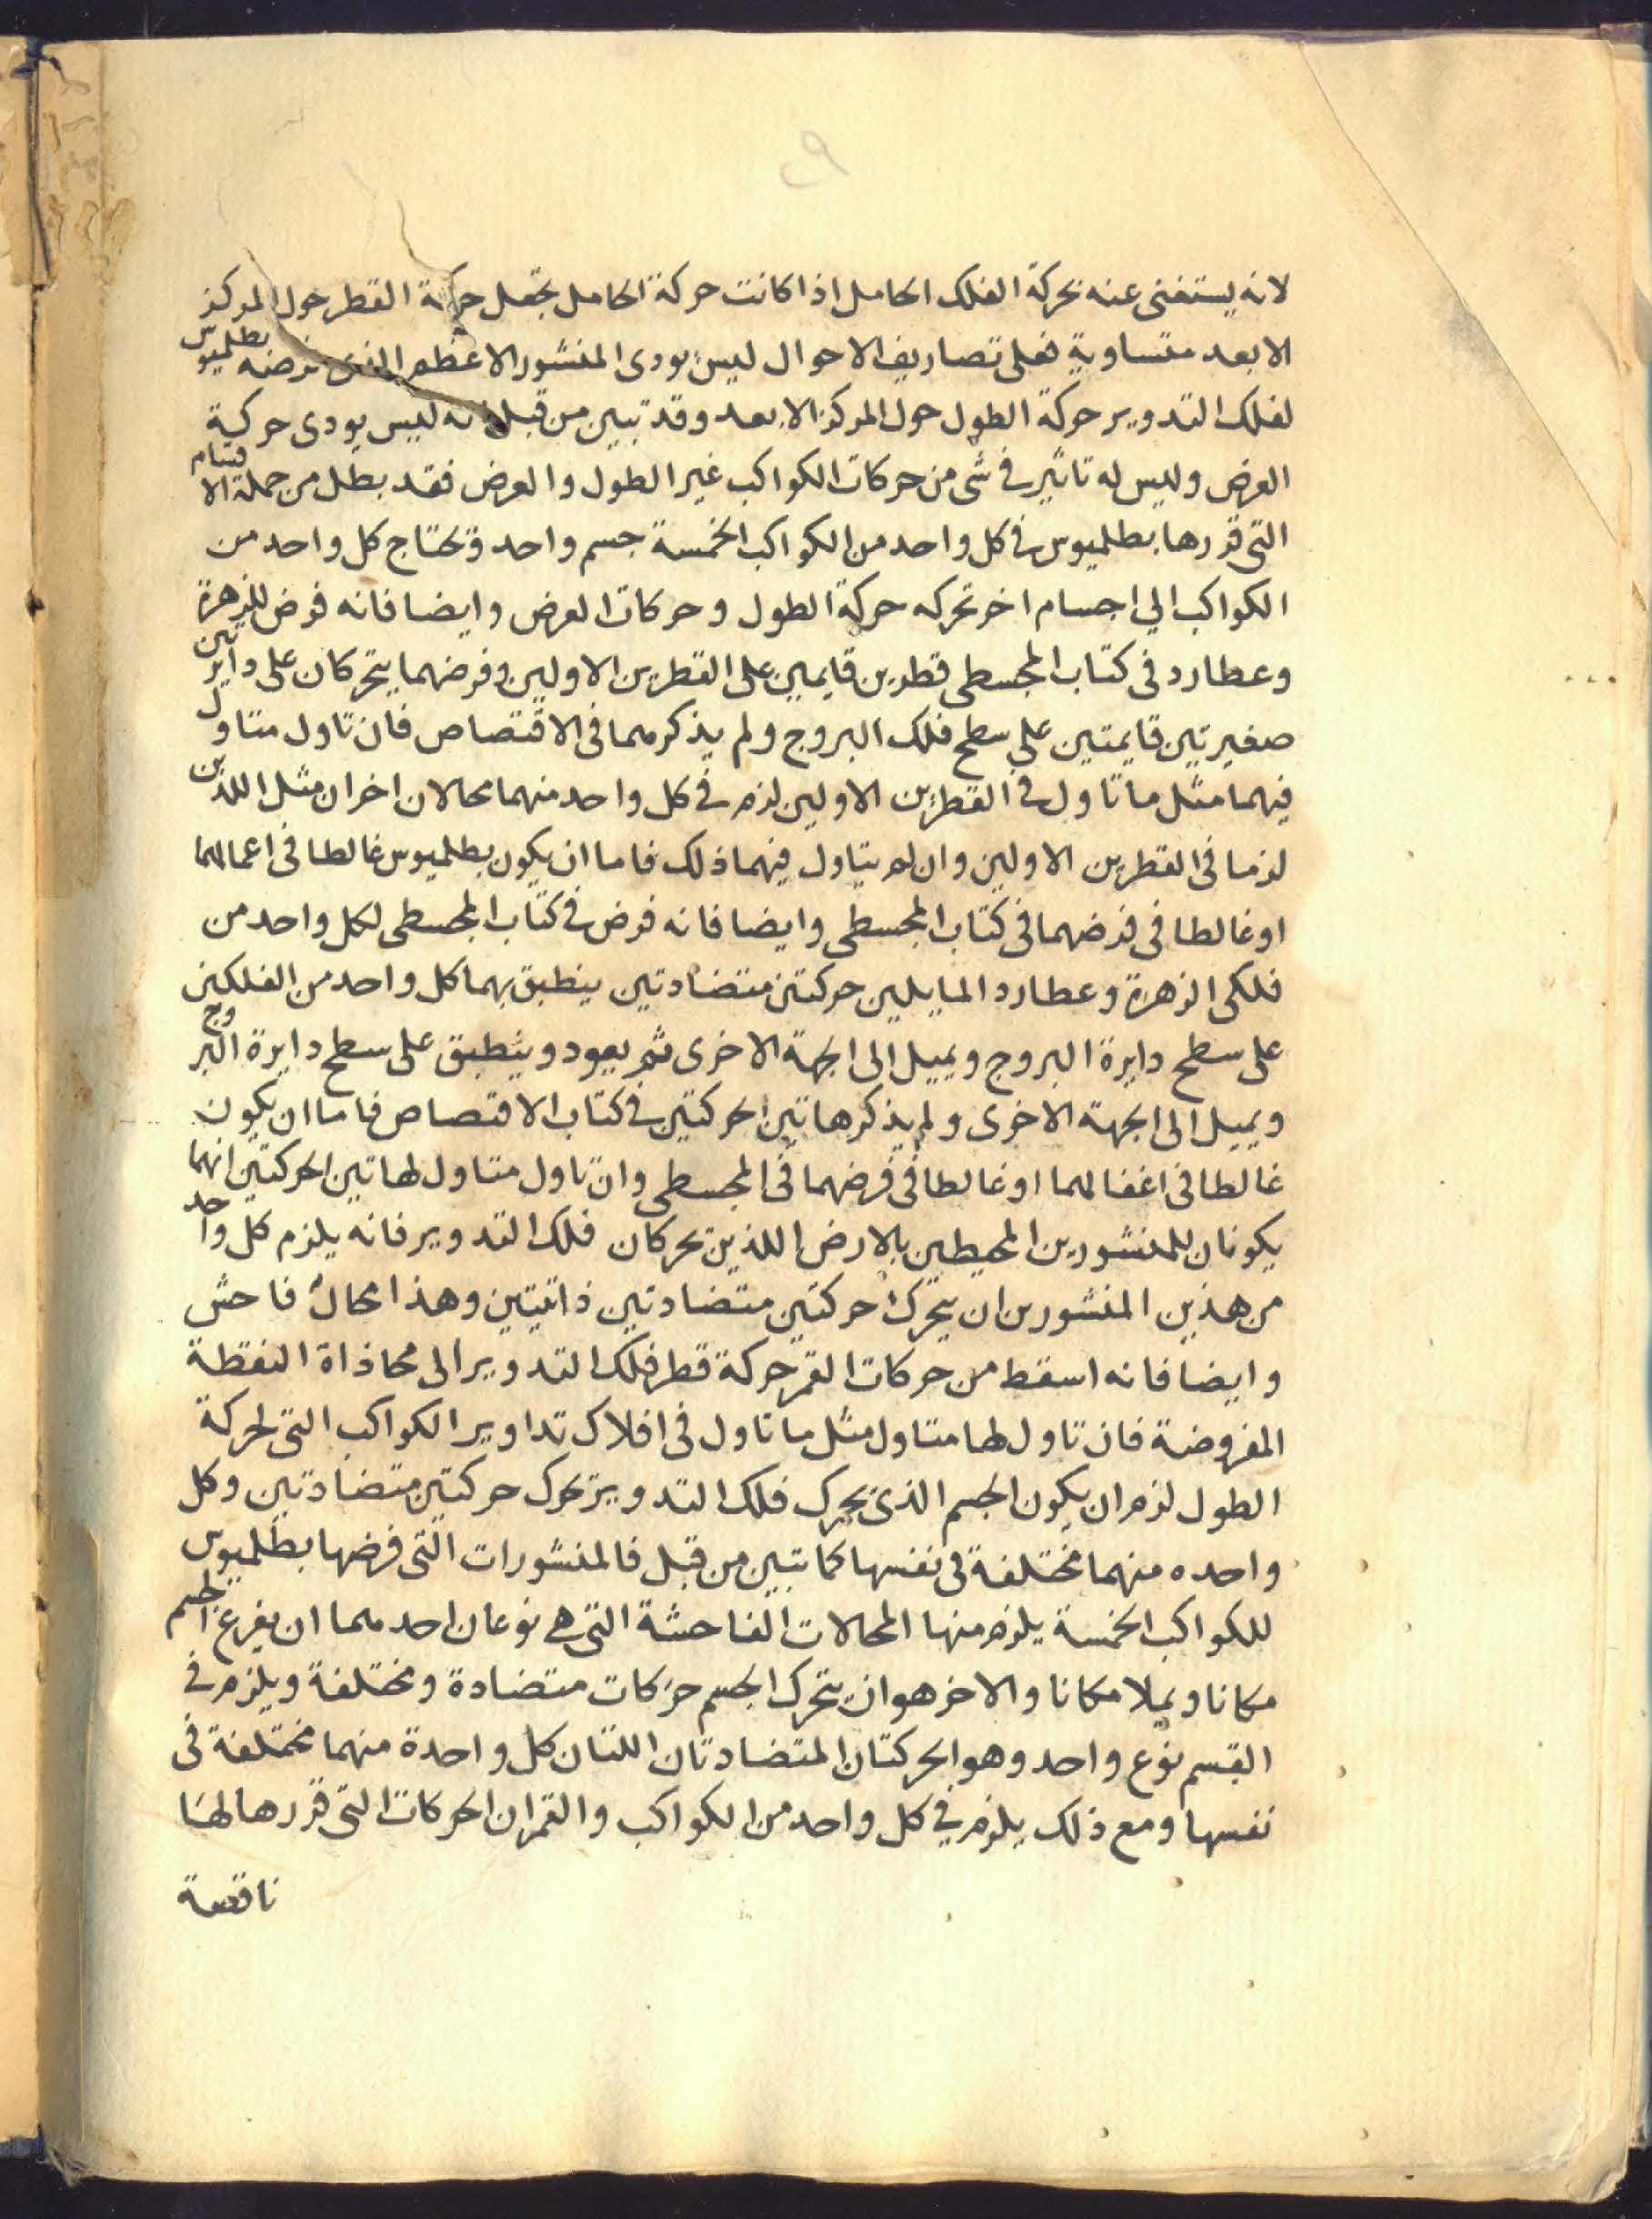 لانه يستغنى عنه بحركة الفلك الحامل اذا كانت حركة الحامل تجعل حركة القطر حول المركز
الابعد متساوية فعلى تصاريف الاحوال ليس يودى المنشور الاعظم الذى فرضه بطلميوس
لفلك التدوير حركة الطول حول المركز الابعد وقد تبين من قبل انه ليس يودى حركة
العرض وليس له تاثير فى شى من حركات الكواكب غير الطول والعرض فقد بطل من جملة الاقسام
التى قررها بطلميوس فى كل واحد من الكواكب الخمسة جسم واحد وتحتاج كل واحد من
الكواكب الي اجسام اخر تحركه حركة الطول وحركات العرض وايضا فانه فرض للزهرة
وعطارد فى كتاب المجسطى قطرين قايمين على القطرين الاولين وفرضهما يتحركان على دايرتين
صغيرتين قايمتين على سطح فلك البروج ولم يذكرهما فى الاقتصاص فان تاول متاول
فيهما مثل ما تاول فى القطرين الاولين لزم فى كل واحد منهما محالان اخران مثل اللذين
لزما فى القطرين الاولين وان لم يتاول فيهما ذلك فاما ان يكون بطلميوس غالطا فى اعمالهما
او غالطا فى فرضهما فى كتاب المجسطى وايضا فانه فرض فى كتاب المجسطى لكل واحد من
فلكى الزهرة وعطارد المايلين حركتين متضادتين ينطبق بهما كل واحد من الفلكين
على سطح دايرة البروج ويميل الى الجهة الاخرى ثم يعود وينطبق على سطح دايرة البروج
ويميل الى الجهة الاخرى ولم يذكر هاتين الحركتين فى كتاب الاقتصاص فاما ان يكون
غالطا فى اغفالهما او غالطا فى فرضهما فى المجسطى وان تاول متاول لهاتين الحركتين انهما
يكونان للمنشورين المحيطين بالارض اللذين تحركان فلك التدوير فانه يلزم كل واحد
من هذين المنشورين ان يتحرك حركتين متضادتين ذاتيتين وهذا محال فاحش
وايضا فانه اسقط من حركات القمر حركة قطر فلك التدوير الى محاذاة النقطة
المفروضة فان تاول لها متاول مثل ما تاول فى افلاك تداوير الكواكب التى لحركة
الطول لزم ان يكون الجسم الذى يحرك فلك التدوير تحرك حركتين متضادتين وكل
واحده منهما مختلفة فى نفسها كما تبين من قبل فالمنشورات التى فرضها بطلميوس
للكواكب الخمسة يلزم منها المحالات الفاحشة التى هى نوعان احدهما ان يفرغ الجسم
مكانا ويملا مكانا والاخر هو ان يتحرك الجسم حركات متضادة ومختلفة ويلزم فى
القسم نوع واحد وهو الحركتان المتضادتان اللتان كل واحدة منهما مختلفة فى
نفسها ومع ذلك يلزم فى كل واحد من الكواكب والقمر ان الحركات التى قررها لها
ناقصة